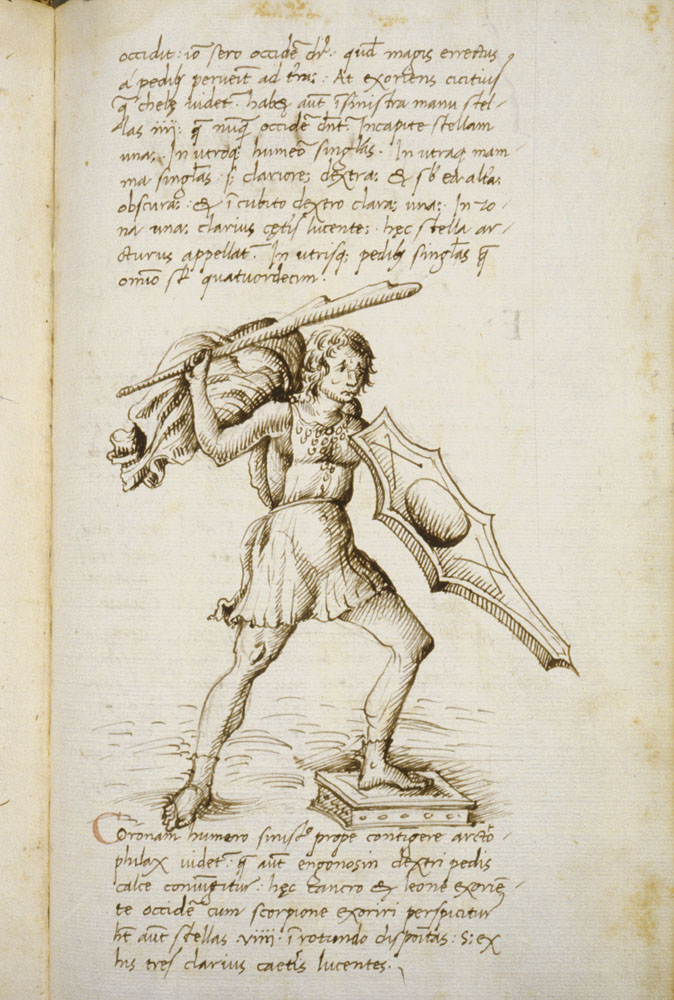 occidit: iõ sero occidẽ dr̃. quod magis errectus
á pedib; perueit ad trã;. At exoriens cicitius
q̃ chelę uidet̃. habeę aut̃ ĩ sinistra manu stel-
las iiii: q̃ nuq̃ occidẽ dñt. Incapite stellam
una;. In utroq; humeõ singlãs. In utraq; mam
ma singlãs. s; clariore; dextra; & sb̃ ea altã;
obscura; & ĩ cubito dextro clara; una;. In zo-
na una; clarius cętis lucente; hęc stella ar-
cturus appellat̃. In utrisq; pedib; singlãs q̃
omino st̃ quatuordecim.
Coronam humero sinist̃o prope contigere arcto-
philax uidet̃: q̃ aut̃ engonosin dextri pedis
calce coniungitur. hęc cancro & leone exoriẽ-
te occidẽ cum scorpione exoriri perspicitur
ht̃ aut̃ stellas .viiii. ĩ rotundo dispoĩtas: S; ex
his tres clarius caetis lucentes.